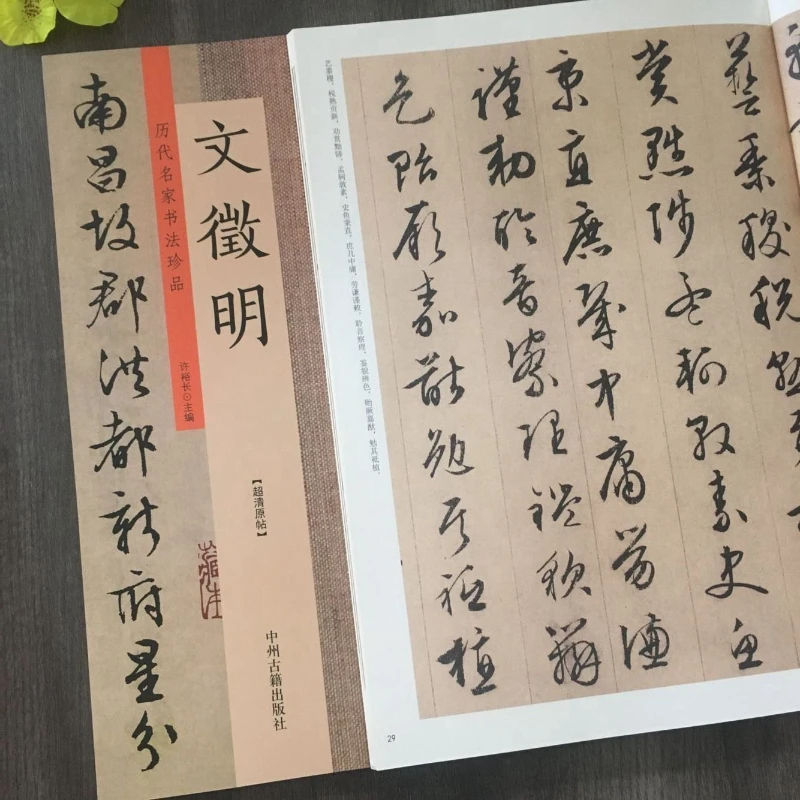 南昌故郡洪都新府星分
历代名家书法珍品
文徵明
许裕长⊙主编
【超清原帖】
中州古籍出版社
藝黍稷税熟
賞黜陟孟軻敦素史魚
秉直庶幾中庸勞謙
謹勑聆音察理鑑貌辨
色貽厥嘉猷勉其祗植
艺黍稷。税熟贡新，劝赏黜陟。孟轲敦素，史鱼秉直。庶几中庸，劳谦谨敕。聆音察理，鉴貌辨色。贻厥嘉猷，勉其祗植。
29